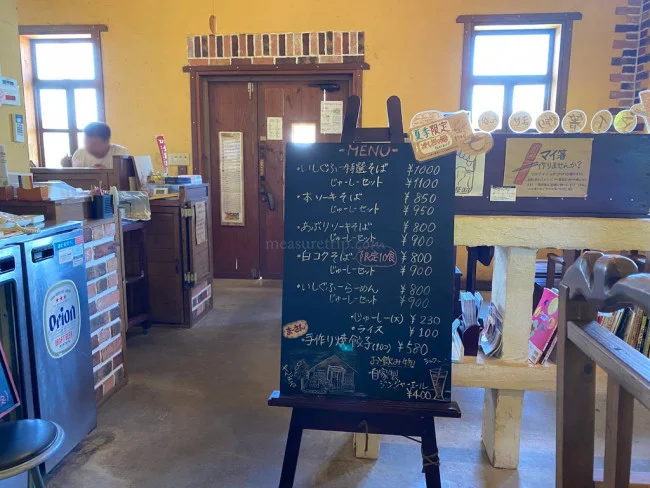 MENU
・いしぐふー特選そば ¥1000
じゅーしーセット ¥1100
・本ソーキそば ¥850
じゅーしーセット ¥950
・あぶりソーキそば ¥800
じゅーしーセット ¥900
・白コクそば 限定10食 ¥800
じゅーしーセット ¥900
・いしぐふーらーめん ¥800
じゅーしーセット ¥900
・じゅーしー(大) ¥230
・ライス ¥100
・手作り焼餃子(10コ) ¥580
お飲み物
自家製
ジンジャーエール
¥400
夏季限定
マイ箸
作りませんか?
Orion
measuretrip.com